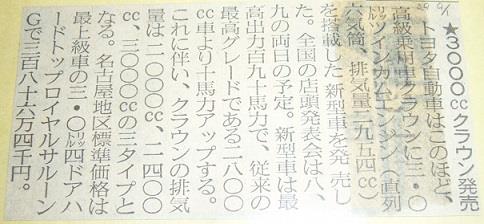 ★3000ccクラウン発売
トヨタ自動車はこのほど、
高級乗用車クラウンに三・〇
リットルツインカムエンジン(直列
六気筒、排気量二九五四cc)
を搭載した新型車を発売し
た。全国の店頭発表会は八、
九の両日の予定。新型車は最
高出力百九十馬力で、従来の
最高グレードである二八〇〇
cc車より十馬力アップする。
これに伴い、クラウンの排気
量は二〇〇〇cc、二四〇〇
cc、三〇〇〇ccの三タイプと
なる。名古屋地区標準価格は
最上級車の三・〇リットル四ドアハ
ードトップロイヤルサルーン
Gで三百八十六万四千円。